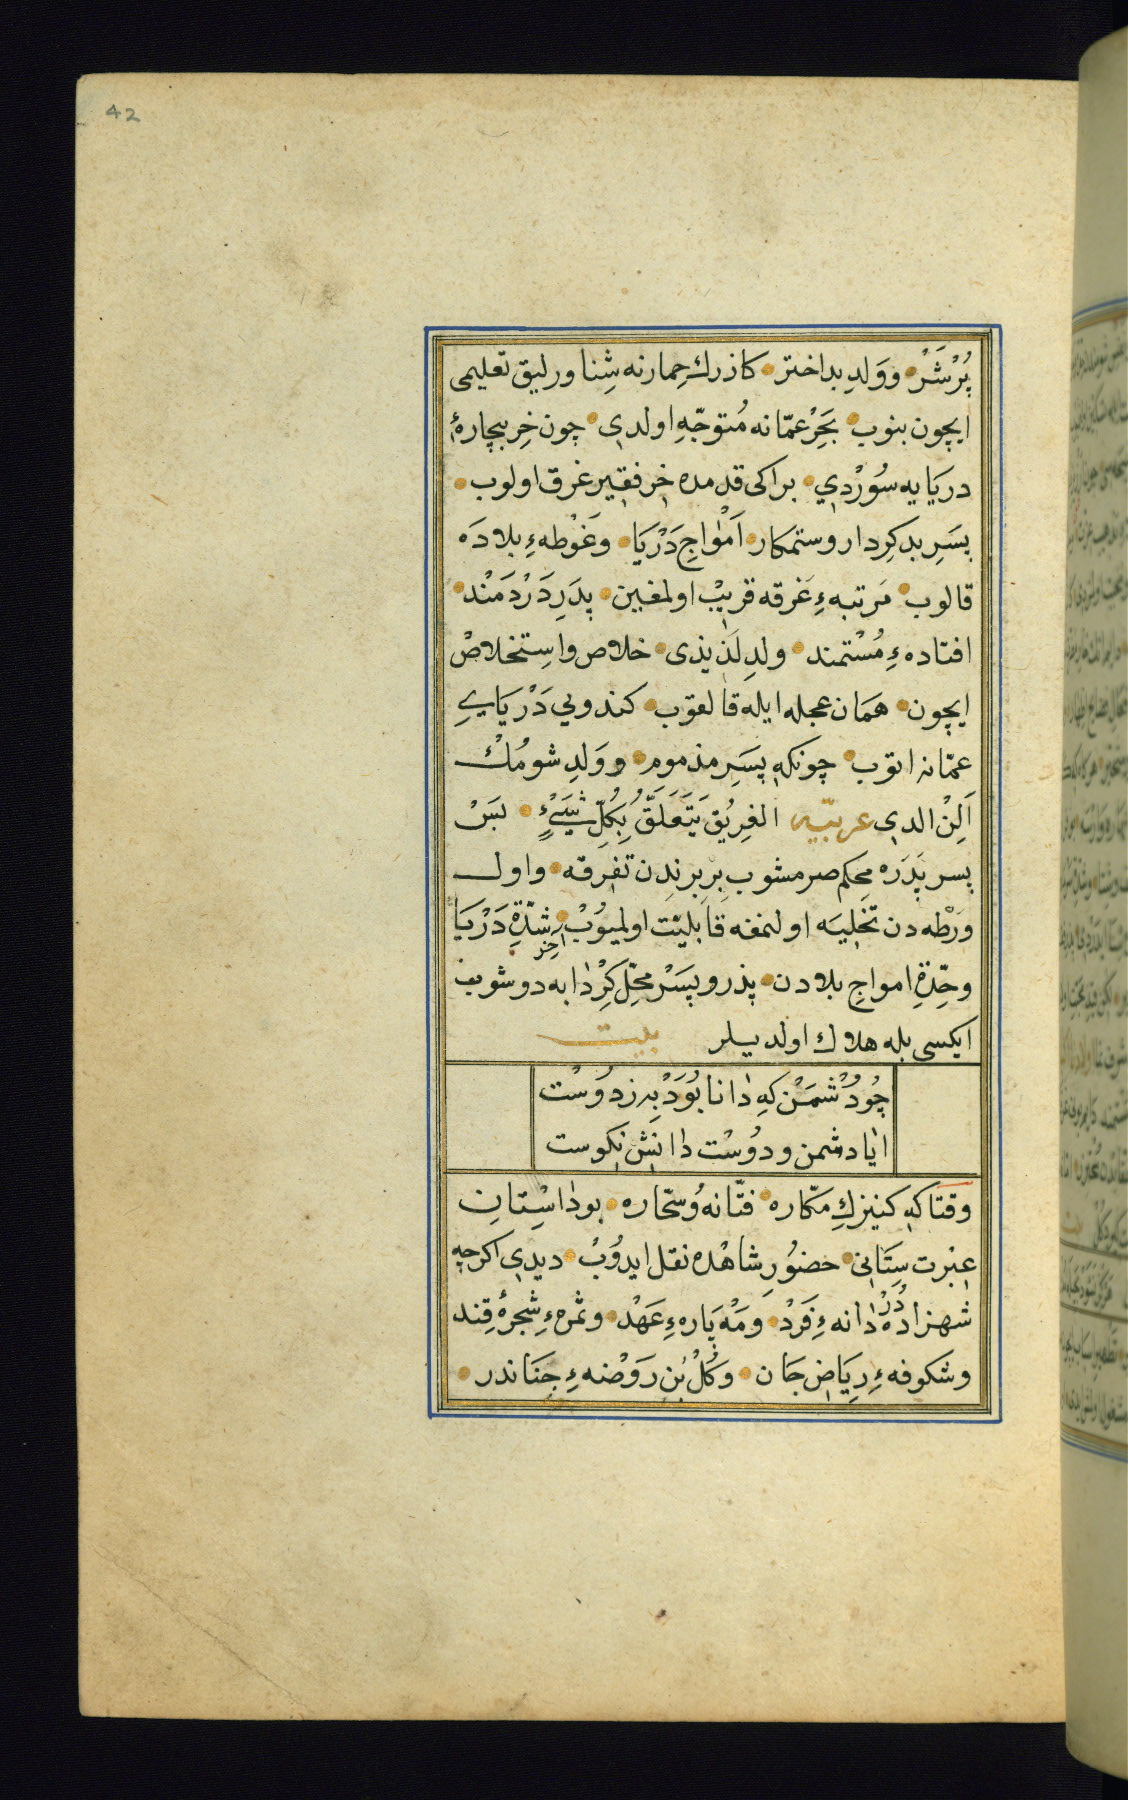 42
پُرْشَرْ ووَلدِ بداختر کاذرك حِمارنه شِنا ورلیق تعلیمی
ایچون بنوب بَحْرِ عمّانه مُتوجّهِ اولدی چون خِر بیچارهٔ
دریَایه سُورْدي براکی قدمده خِر فقیر غرق اولوب
پسَرِ بدکِردار وستمکار اَمْواجِ دَرْیَا وغَوْطهءِ بلادَه
قالوب مَرتبهءِ غَرقه قریبْ اولمغین پدَرِ دَرْدمَنْد
افتادهءِ مُسْتمند ولدِ لَذیذی خلاص واسِتخلاصْ
ایچون همَان عجله ایله قالقوب کندویي دَرْیَايِ
عمّانه اتوب چونکه پسَرِ مذموم ووَلدِ شومُكْ
اَلِنْ الدي عربیّه الغرِیْق یَتَعَلَّقُ بِکُلِّ شَيْءٍ بَسْ
پسر پدَرَه محکم صرمشوب بربرندن تفرقه واول
وَرْطه دن تخْلِیَه اولنمغه قابلیّت اولمیوبْ آخر شدّةِ دَرْیَا
وحِدّةِ امواجِ بلادن پذر وپسَرْ محلّ کِرْدابه دوشوب
ایکسی بله هلاك اولدیلر بیت
چُو دُشْمَنْ کهِ دانا بُوَدْ بِه ز دوسْت
ایا دشمن ودُوسْت دانِشْ نِکوست
وقتاکه کنیزكِ مکّاره فتّانه وُسحّاره بوداسْتانِ
عِبْرت سِتَانی حضوُرِ شاهْده نقل ایدوُبْ دیدي اکرچه
شهزاده دُرْدانهءِ فَرَدْ ومَهْ پارهءِ عَهْد وثمرهءِ شجرهٔ قند
وشکوفهءِ ریَاضِ جَان وکُلْبُنِ رَوْضهءِ جنَاندر